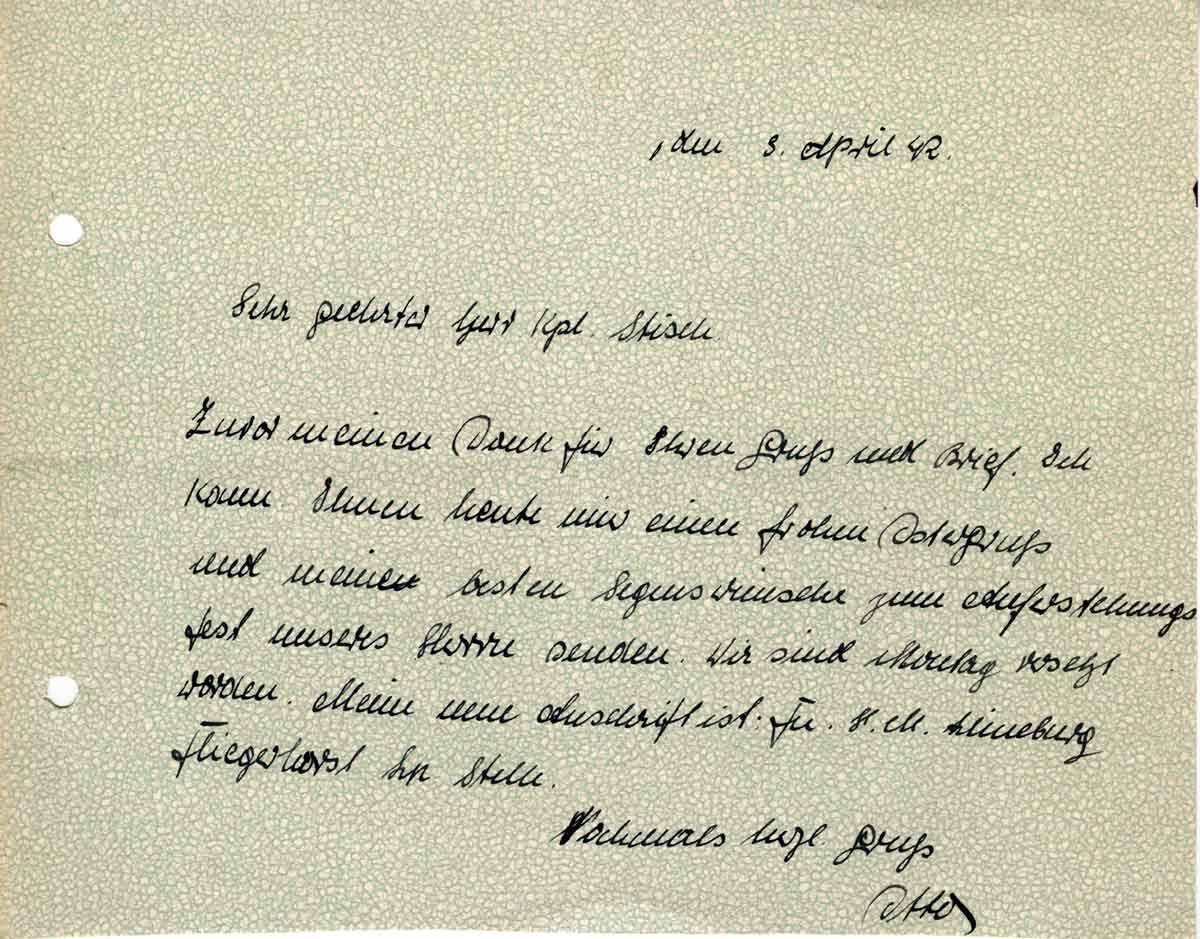 , den 3. April 42.
Sehr geehrter Herr Kpl. Stisch
Zuvor meinen Dank für Ihren Gruß und Brief. Ich
kann Ihnen heute nur einen frohen Ostergruß
und meine besten Segenswünsche zum Auferstehungs
fest unseres Herrn senden. Wir sind Montag versetzt
worden. Meine neue Anschrift ist. Fu. Lüneburg
Fliegerhorst Stelle.
Nochmals herzl Gruß
Otto